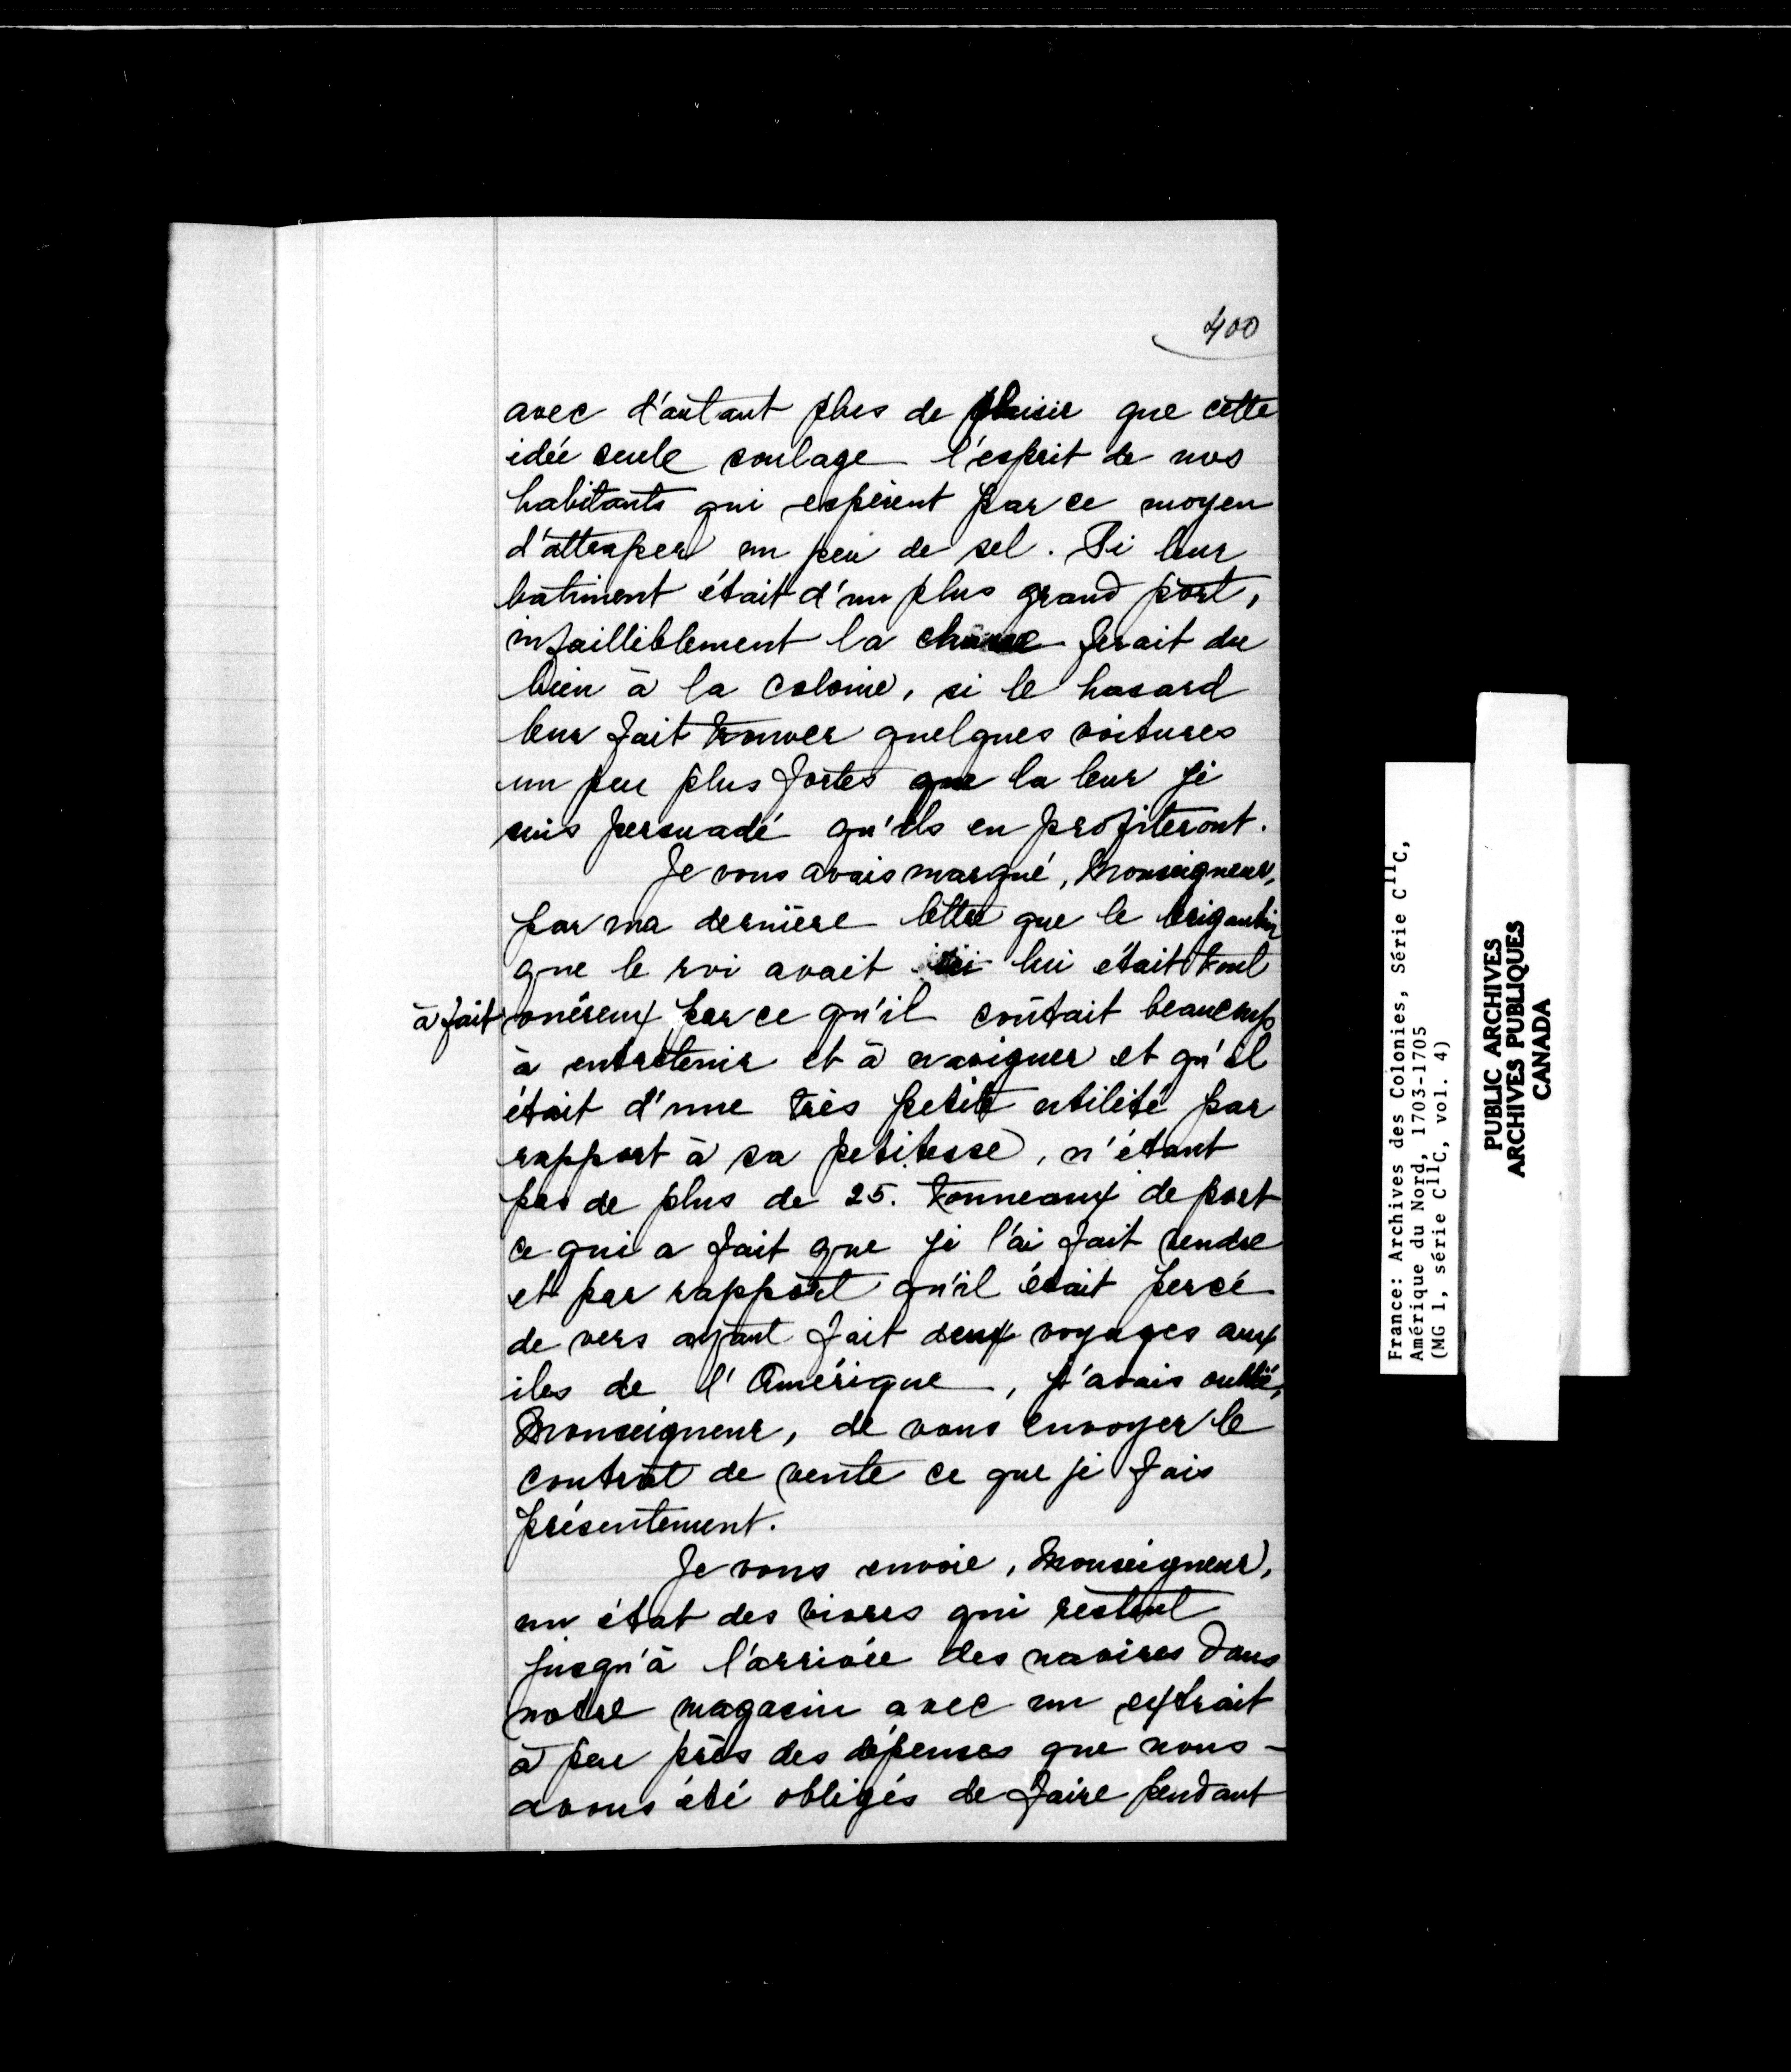 400
avec d'autant plus de plaisir que cette
idée seule soulage l'esprit de nos
habitants qui espèrent par ce moyen
d'attraper un peu de sel. Si leur
batiment était d'un plus grand port,
infailliblement la chasse ferait du
bien à la colonie, si le hasard
leur fait trouver quelques voitures
un peu plus fortes que la leur je
suis persuadé qu'ils en profiteront.
Je vous avais marqué, Monseigneur,
par ma dernière lettre que le brigantin
que le roi avait ici lui était tout
à fait onéreux parce qu'il coûtait beaucoup
à entretenir et à naviguer et qu'il
était d'une très petite utilité par
rapport à sa petitesse, n'étant
pas de plus de 25. tonneaux de port
ce qui a fait que je l'ai fait vendre
et par rapport qu'il était percé
de vers ayant fait deux voyages aux
iles de l'Amérique, j'avais oublié,
Monseigneur, de vous envoyer le
contrat de vente ce que je fais
présentement.
Je vous envoie, Monseigneur,
un état des vivres qui restent
jusqu'à l'arrivée des navires dans
notre magasin avec un extrait
à peu près des dépenses que nous -
avons été obligés de faire pendant
France: Archives des Colonies, Série C11C,
Amérique du Nord, 1703-1705
(MG 1, série C11C, vol. 4)
PUBLIC ARCHIVES
ARCHIVES PUBLIQUES
CANADA